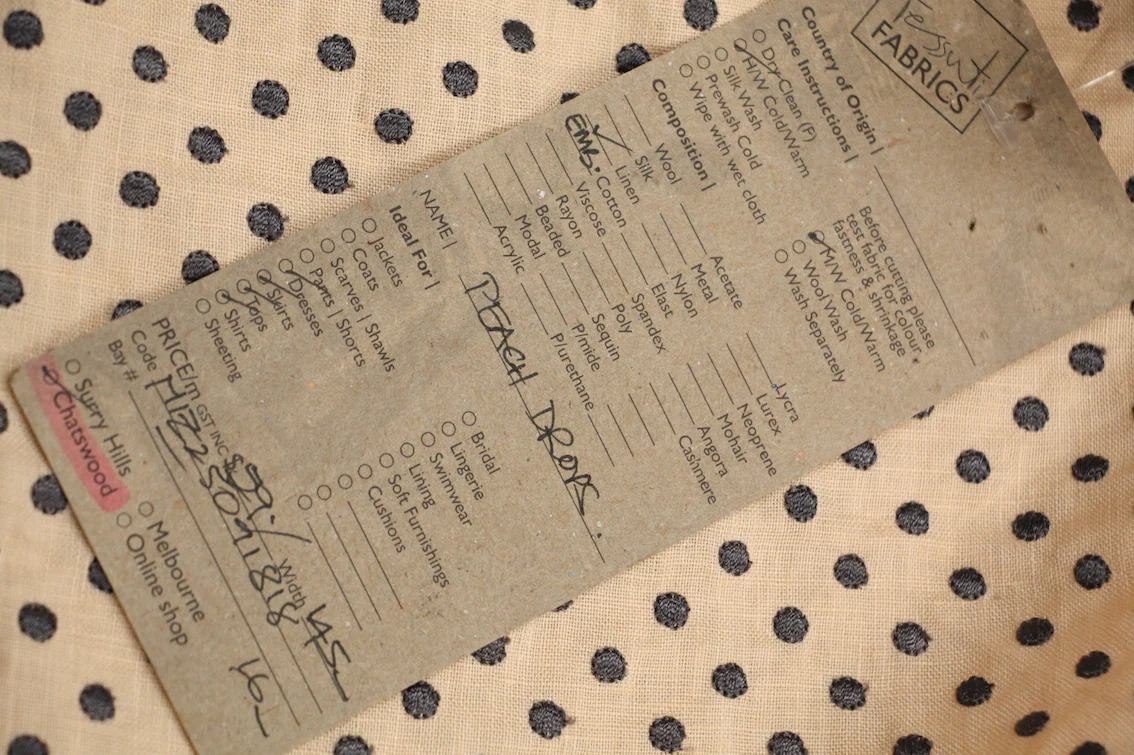 Tessuti
FABRICS
Country of Origin |
Care Instructions |
Dry Clean (P)
H/W Cold/Warm
Silk Wash
Prewash Cold
Wipe with wet cloth
Before cutting please
test fabric for colour
fastness & shrinkage
M/W Cold/Warm
Wool Wash
Wash Separately
Composition |
Wool
Silk
✓ Linen
EMB. Cotton
Viscose
Rayon
Beaded
Modal
Acrylic
Acetate
Metal
Nylon
Elast
Spandex
Poly
Sequin
P/mide
P/urethane
Lycra
Lurex
Neoprene
Mohair
Angora
Cashmere
NAME | PEACH DROPS.
Ideal For |
Jackets
Coats
Scarves | Shawls
Pants | Shorts
Dresses
Skirts
Tops
Shirts
Sheeting
Bridal
Lingerie
Swimwear
Lining
Soft Furnishings
Cushions
PRICE/m GST INC $59./ Width 145
Code
Bay # 16
Surry Hills
Chatswood
Melbourne
Online shop